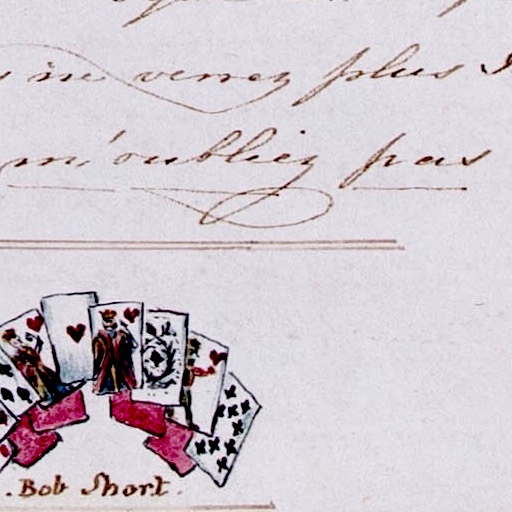 ne venez plus
m'oubliez pas
Bob Short.